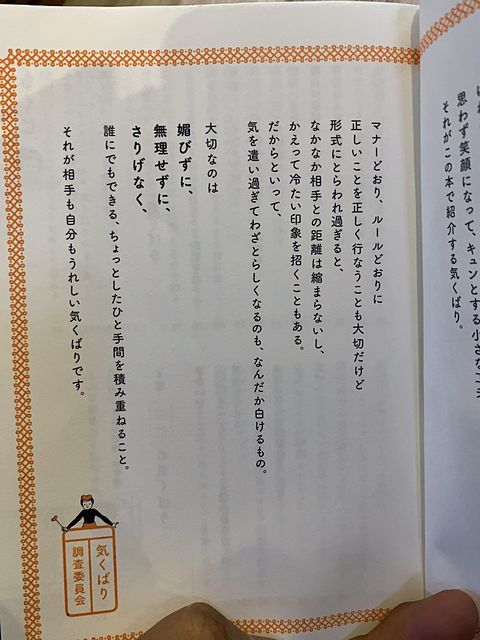 思わず笑顔になって、キュンとする小さな
それがこの本で紹介する気くばり。
マナーどおり、ルールどおりに
正しいことを正しく行なうことも大切だけど
形式にとらわれ過ぎると、
なかなか相手との距離は縮まらないし、
かえって冷たい印象を招くこともある。
だからといって、
気を遣い過ぎてわざとらしくなるのも、なんだか白けるもの。
大切なのは
媚びずに、
無理せずに、
さりげなく、
誰にでもできる、ちょっとしたひと手間を積み重ねること。
それが相手も自分もうれしい気くばりです。
気くばり
調査委員会